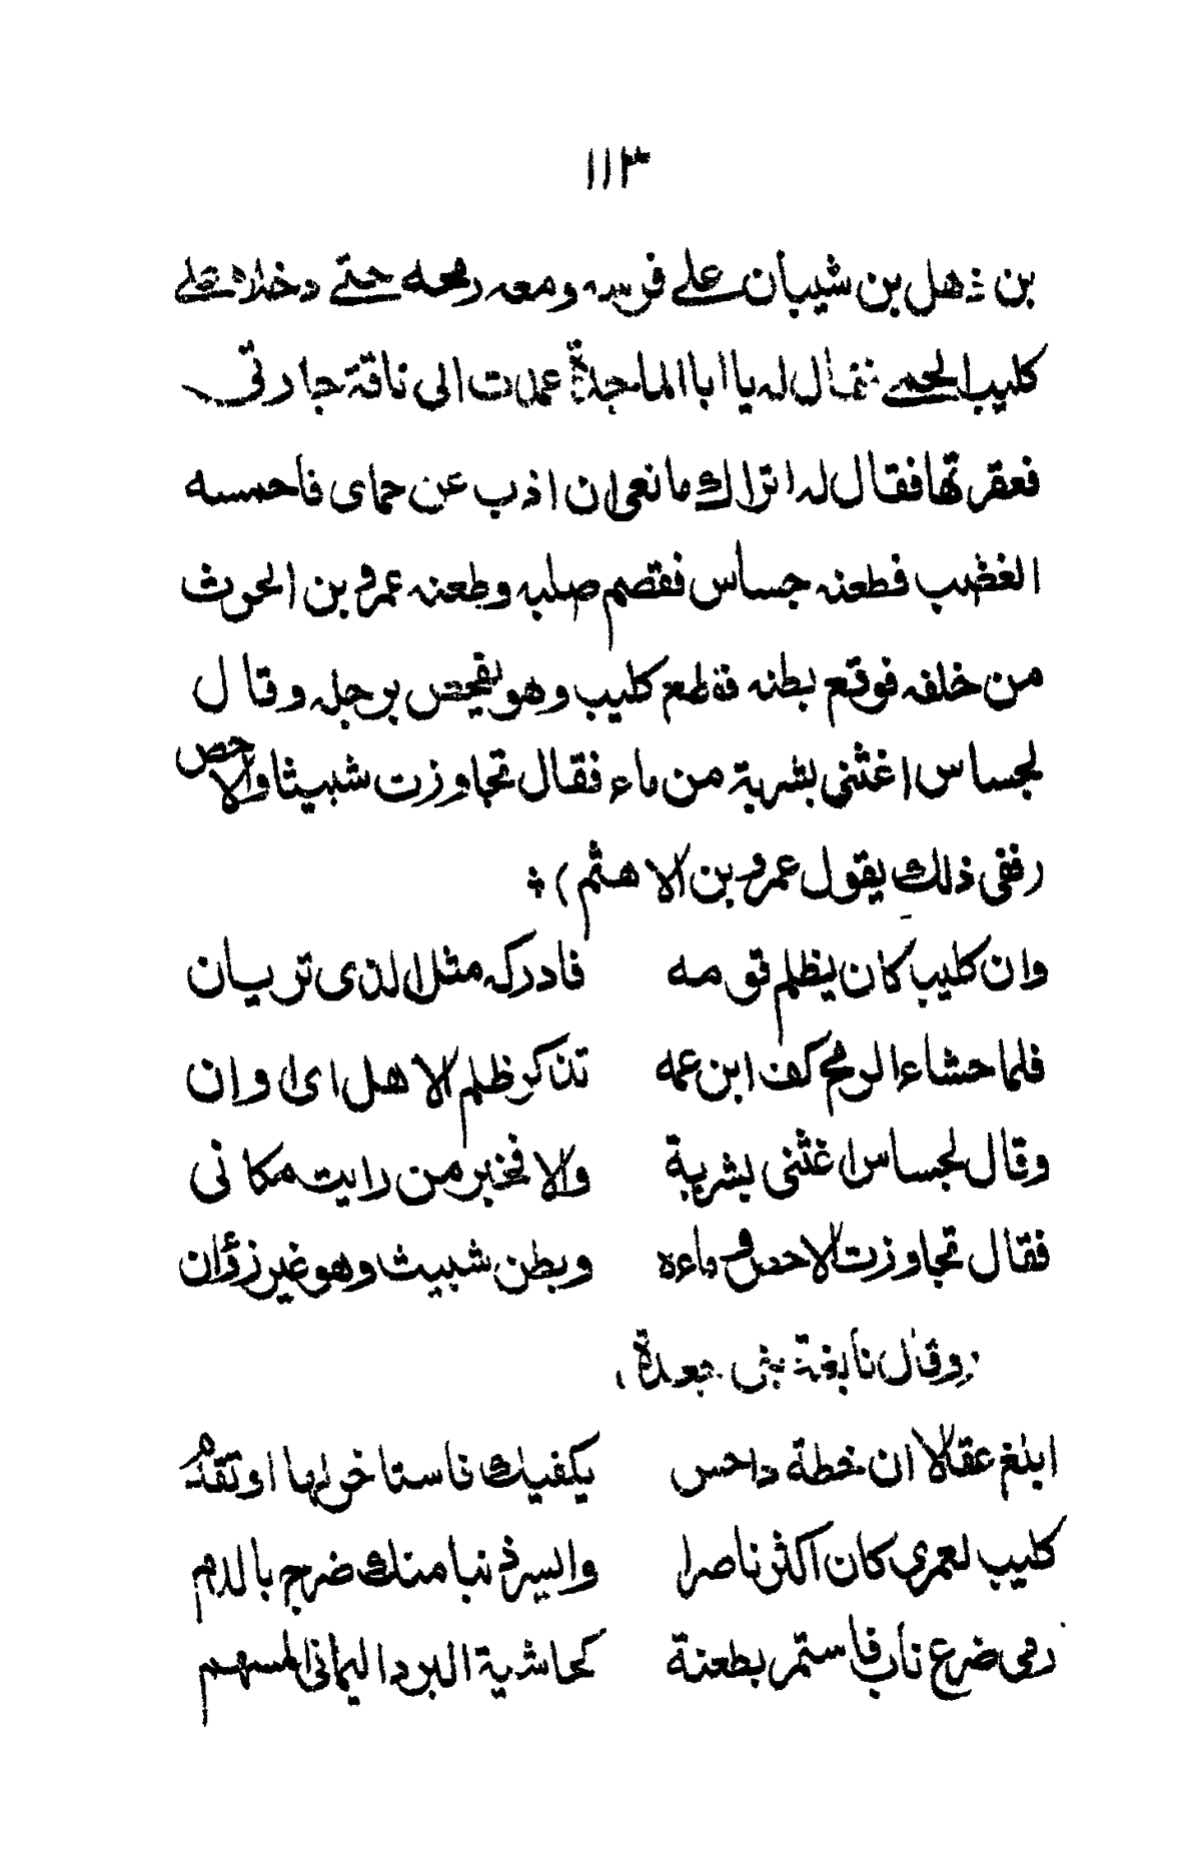 ١١٣
بن ذهل بن شيبان على فرسه ومعه رمحه حتى دخلا على
كليب الحمى فقال له يا ابا الماجدة عمدت الى ناقة جارتى
فعقرتها فقال له اتراك مانعى ان اذب عن حماى فاحمسه
الغضب فطعنه جساس فقصم صلبه وطعنه عمرو بن الحرث
من خلفه فوقع بطنه فقطع كليب وهو يفحص برجله وقال
لجساس اغثنى بشربة من ماء فقال تجاوزت شبيثا والاحص
(ففى ذلك يقول عمرو بن الاهتم)
وان كليب كان يظلم قومه فادركه مثل الذى تريان
فلما حشاء الرمح كف ابن عمه تذكر ظلم الاهل اى اوان
وقال لجساس اغثنى بشربة والا فخبر من رايت مكانى
فقال تجاوزت الاحص وماءه وبطن شبيث وهو غير زؤان
(وقال نابغة بنى جعدة)
ابلغ عقالا ان خطة داحس بكفيك فاستاخر لها او تقدم
كليب لعمري كان اكثر ناصرا وايسر ذنبا منك ضرج بالدم
رمى ضرع ناب فاستمر بطعنة كحاشية البرد اليمانى المسهم